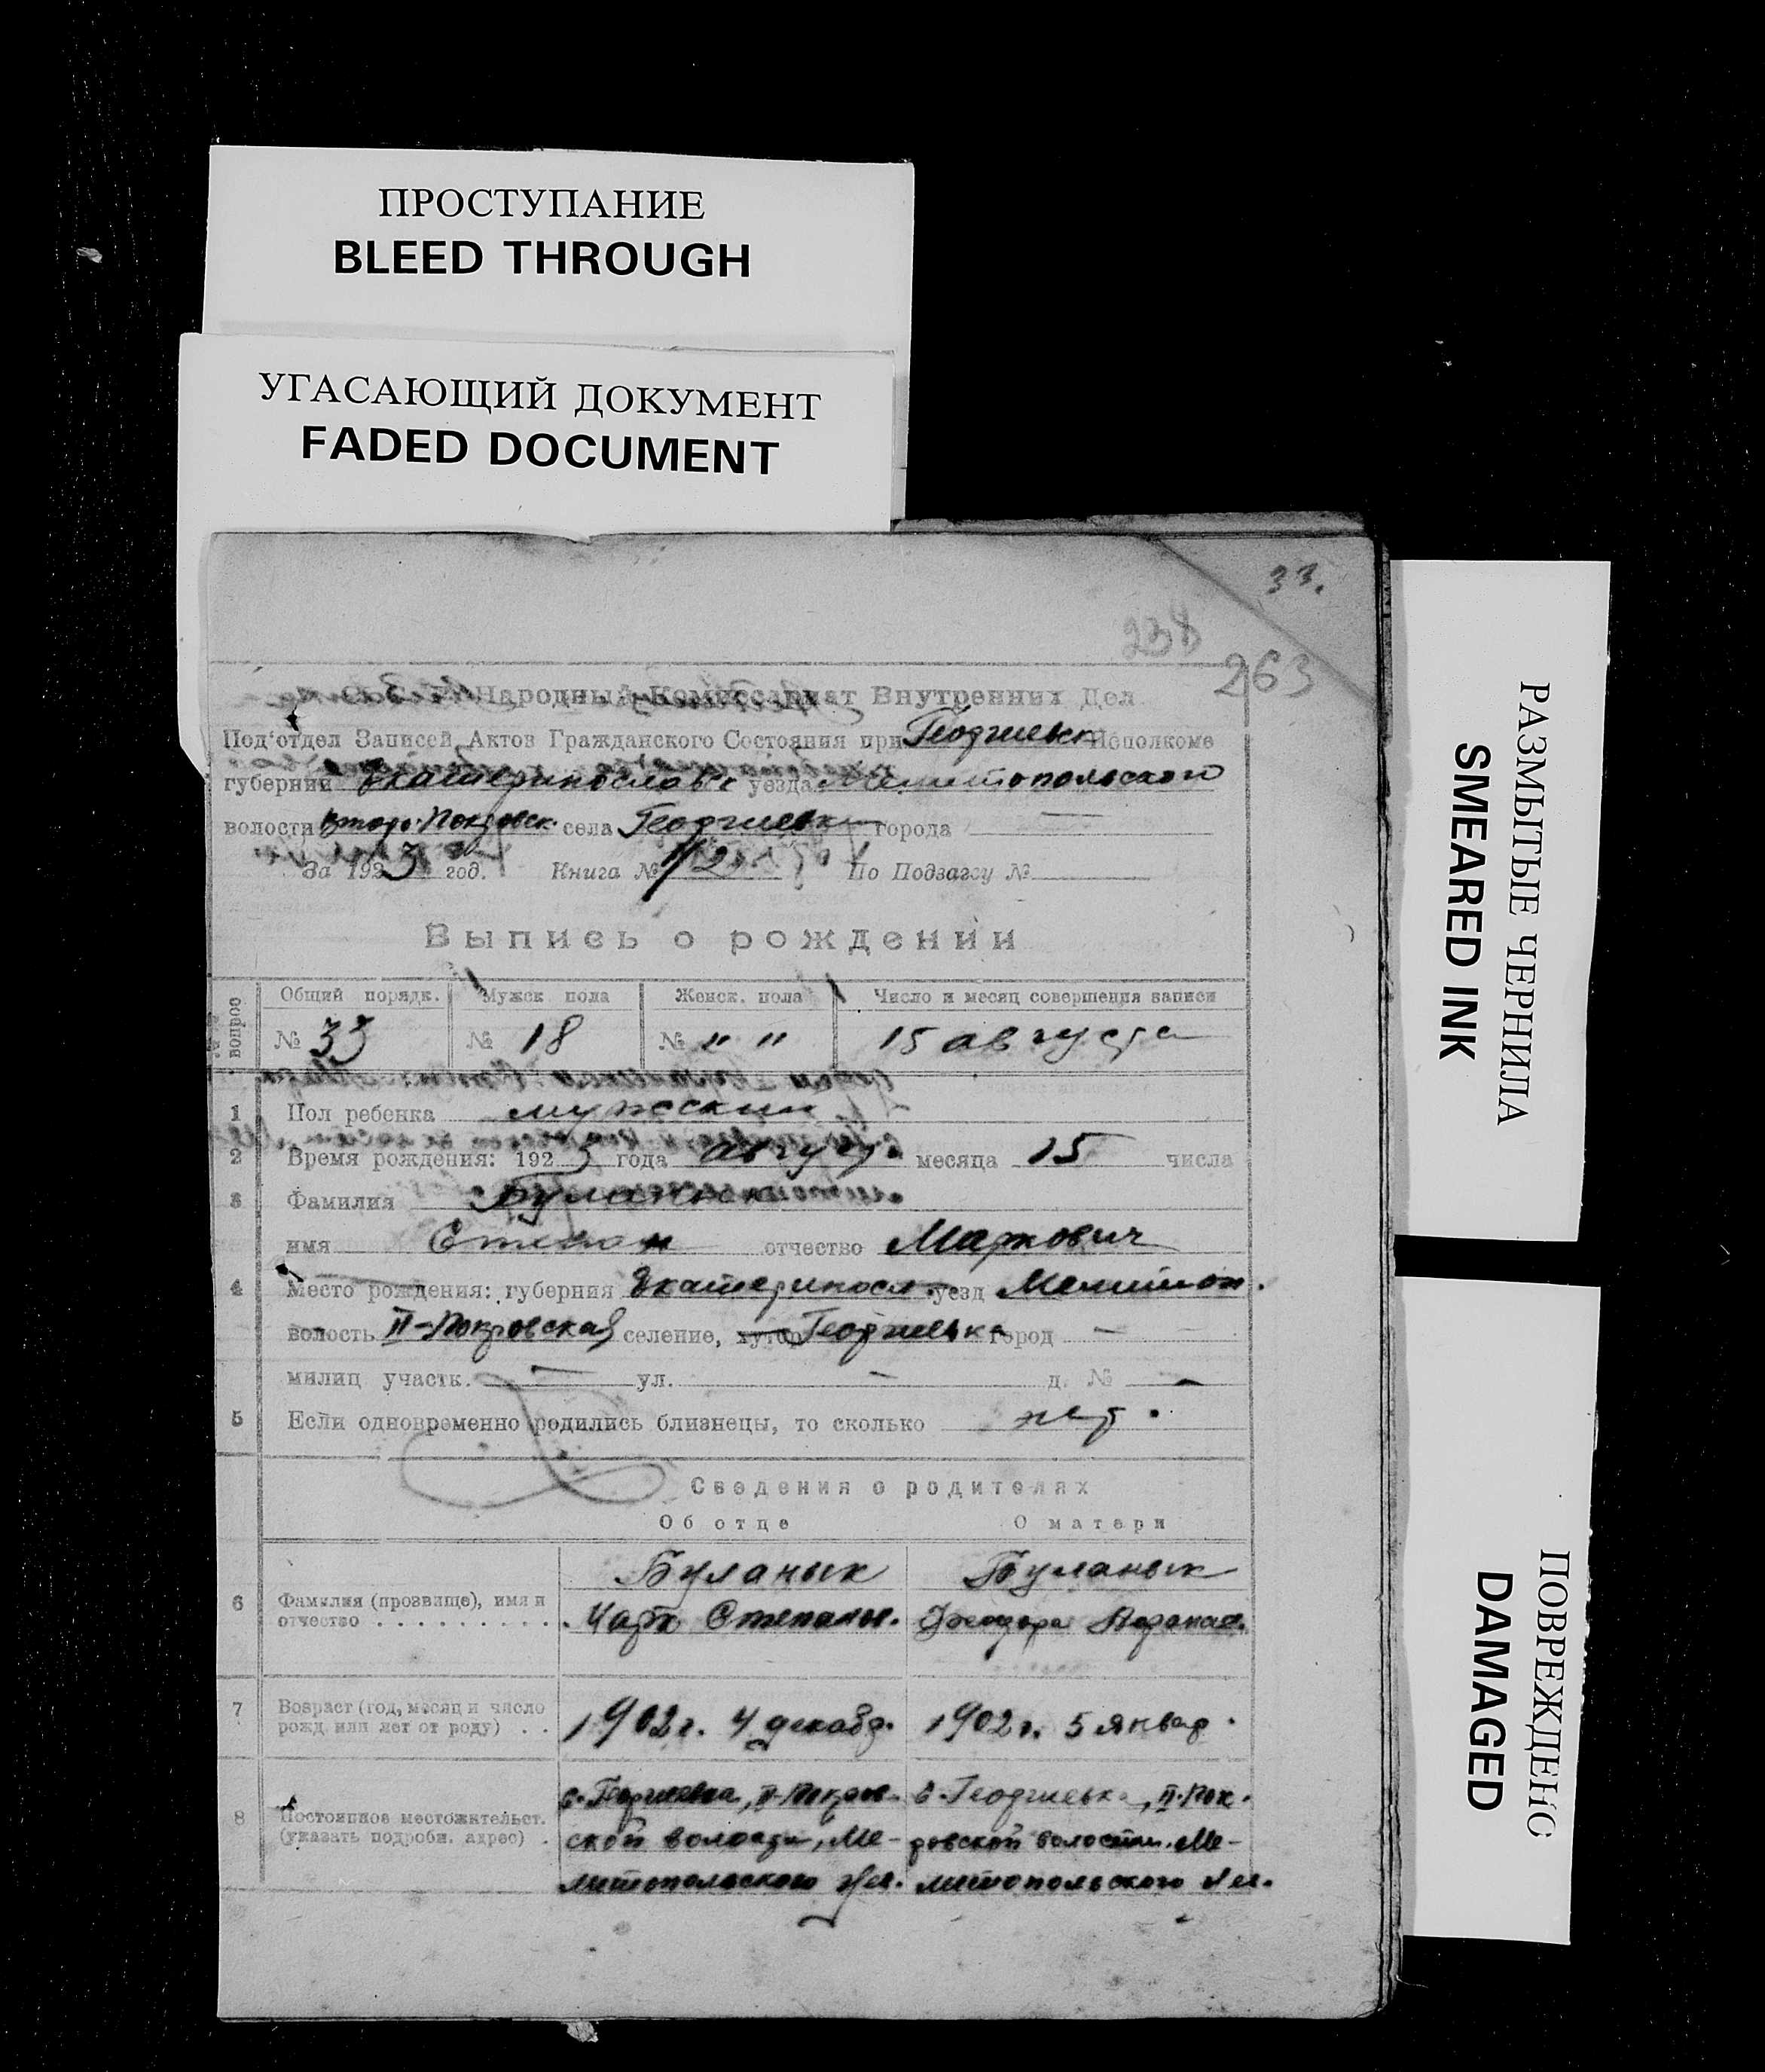 ПРОСТУПАНИЕ
BLEED THROUGH
УГАСАЮЩИЙ ДОКУМЕНТ
FADED DOCUMENT
33.
238
263
Народный Комиссариат Внутренних Дел
Под'отдел Записей Актов Гражданского Состояния при Георгиевск Исполкоме
губернии Екатеринославск уезда Мелитопольского
волости Второ-Покровск. села Георгиевки города —
За 1923 год. Книга № 1/2 По Подзагсу №
Выпись о рождении
вопрос Общий порядк. Мужск пола Женск. пола Число и месяц совершения записи
№ 33 № 18 № " " 15 августа
1 Пол ребенка мужской
2 Время рождения: 1923 года август. месяца 15 числа
3 Фамилия Буланык
имя Степан отчество Маркович
4 Место рождения: губерния Екатериносл. уезд Мелитоп.
волость II-Покровская селение, хутор Георгиевка город —
милиц участк. — ул. — д. № —
5 Если одновременно родились близнецы, то сколько нет.
Сведения о родителях
Об отце О матери
6 Фамилия (прозвище), имя и отчество . . . . . . . . . Буланык Марк Степанов. Буланык
7 Возраст (год, месяц и число рожд. или лет от роду) . . 1902 г. 4 декабр. 1902 г. 5 январ.
8 Постоянное местожительст. (указать подробн. адрес) .
с. Георгиевка, II-Покров- с. Георгиевка, II-Пок-
ской волости, Ме- ровской волости, Ме-
литопольского литопольского
РАЗМЫТЫЕ ЧЕРНИЛА
SMEARED INK
ПОВРЕЖДЕНО
DAMAGED